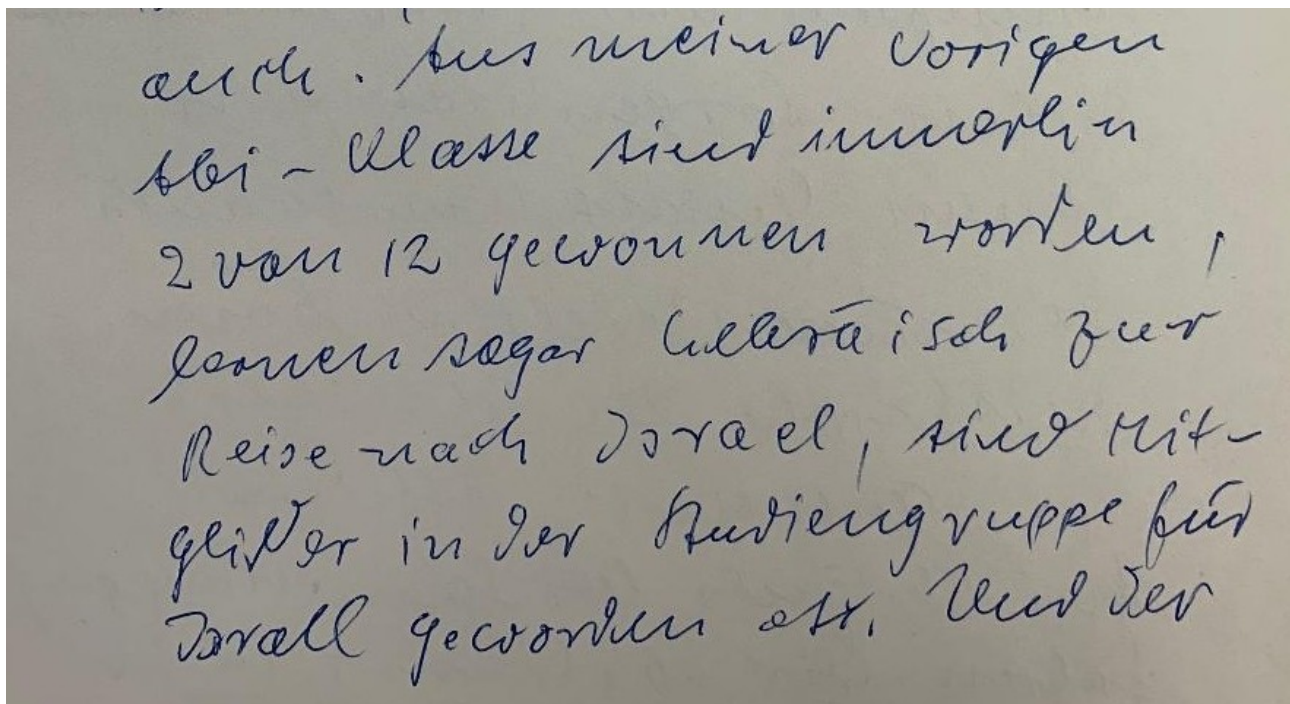 auch. Aus meiner vorigen
Abi-Klasse sind immerhin
2 von 12 gewonnen worden,
lernen sogar hebräisch zur
Reise nach Israel, sind Mit-
glieder in der Studiengruppe für
Israel geworden etc. Und der